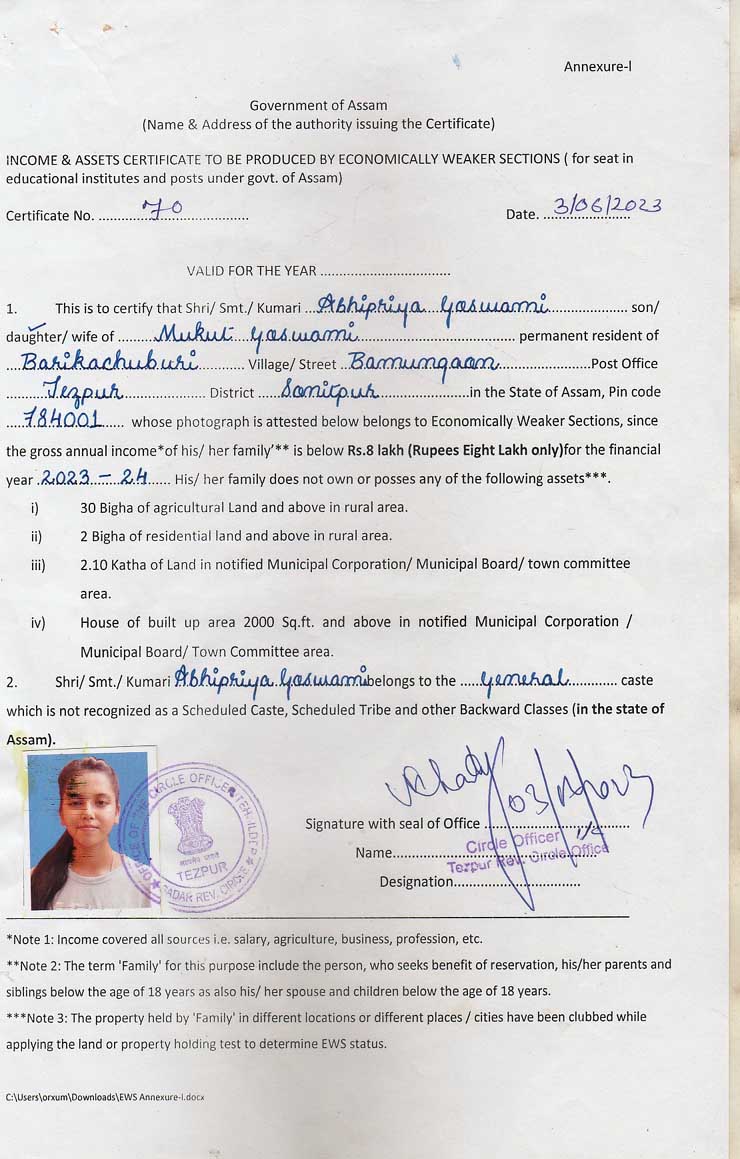 Annexure-I
Government of Assam
(Name & Address of the authority issuing the Certificate)
INCOME & ASSETS CERTIFICATE TO BE PRODUCED BY ECONOMICALLY WEAKER SECTIONS ( for seat in
educational institutes and posts under govt. of Assam)
Certificate No. ........70........................ Date. ...3/06/2023
VALID FOR THE YEAR .................................
1. This is to certify that Shri/ Smt./ Kumari ...Abhipriya Goswami..................... son/
daughter/ wife of .........Mukut Goswami................................... permanent resident of
....Barikachuburi........... Village/ Street ..Bamungaon.......................Post Office
.........Tezpur..................... District .....Sonitpur.....................in the State of Assam, Pin code
....784001...... whose photograph is attested below belongs to Economically Weaker Sections, since
the gross annual income*of his/ her family'** is below Rs.8 lakh (Rupees Eight Lakh only)for the financial
year .2023-24...... His/ her family does not own or posses any of the following assets***.
i) 30 Bigha of agricultural Land and above in rural area.
ii) 2 Bigha of residential land and above in rural area.
iii) 2.10 Katha of Land in notified Municipal Corporation/ Municipal Board/ town committee
area.
iv) House of built up area 2000 Sq.ft. and above in notified Municipal Corporation /
Municipal Board/ Town Committee area.
2. Shri/ Smt./ Kumari Abhipriya Goswami belongs to the .....General............. caste
which is not recognized as a Scheduled Caste, Scheduled Tribe and other Backward Classes (in the state of
Assam).
OFFICE OF THE CIRCLE OFFICER
TEZPUR
SADAR REV. CIRCLE
Signature with seal of Office ....................................
Name....................................................
Circle Officer
Tezpur Rev. Circle Office
Designation...............................
*Note 1: Income covered all sources i.e. salary, agriculture, business, profession, etc.
**Note 2: The term 'Family' for this purpose include the person, who seeks benefit of reservation, his/her parents and
siblings below the age of 18 years as also his/ her spouse and children below the age of 18 years.
***Note 3: The property held by 'Family' in different locations or different places / cities have been clubbed while
applying the land or property holding test to determine EWS status.
C:\Users\orxum\Downloads\EWS Annexure-I.docx